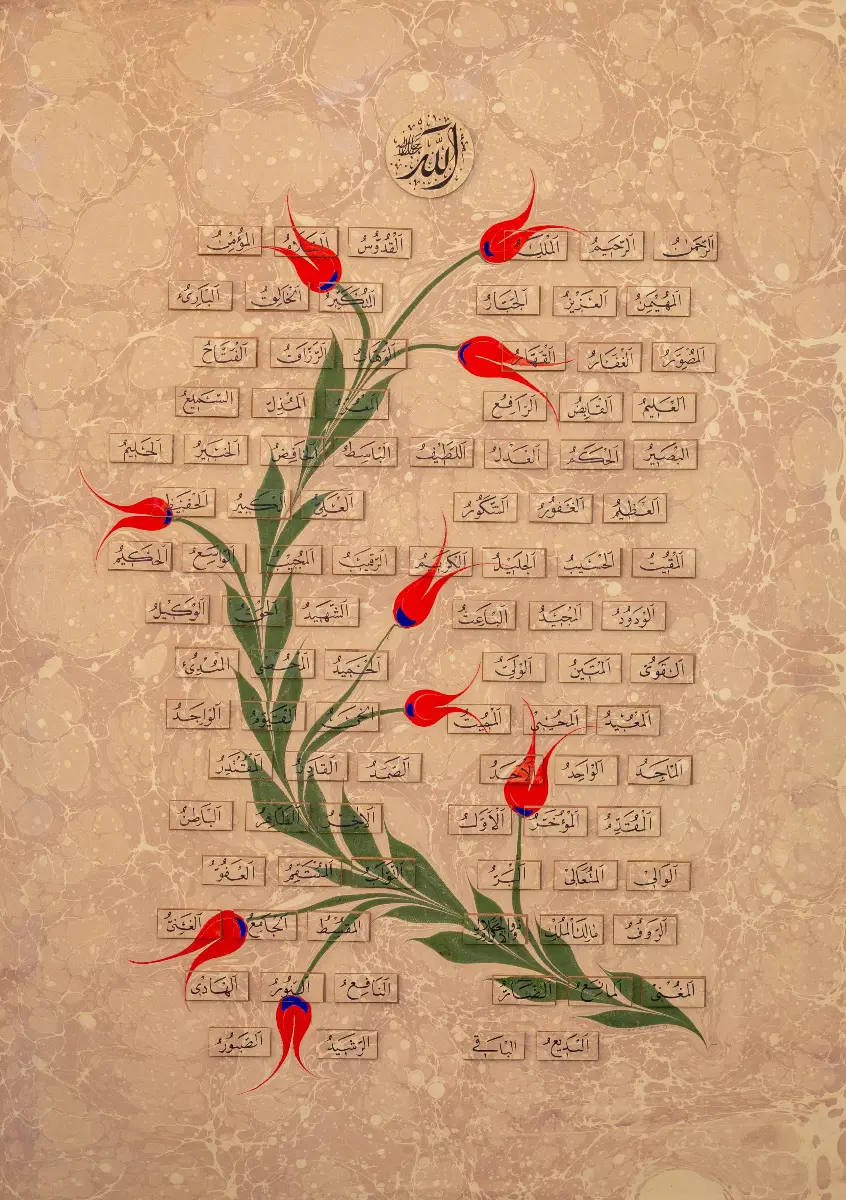 اللّٰه جل جلاله
اَلرَّحْمٰنُ اَلرَّحِيمُ اَلْمَلِكُ اَلْقُدُّوسُ اَلسَّلَامُ اَلْمُؤْمِنُ
اَلْمُهَيْمِنُ اَلْعَزِيزُ اَلْجَبَّارُ اَلْمُتَكَبِّرُ اَلْخَالِقُ اَلْبَارِىءُ
اَلْمُصَوِّرُ اَلْغَفَّارُ اَلْقَهَّارُ اَلْوَهَّابُ اَلرَّزَّاقُ اَلْفَتَّاحُ
اَلْعَلِيمُ اَلْقَابِضُ اَلرَّافِعُ اَلْمُعِزُّ اَلْمُذِلُّ اَلسَّمِيعُ
اَلْبَصِيرُ اَلْحَكَمُ اَلْعَدْلُ اَللَّطِيفُ اَلْبَاسِطُ اَلْخَافِضُ اَلْخَبِيرُ اَلْحَلِيمُ
اَلْعَظِيمُ اَلْغَفُورُ اَلشَّكُورُ اَلْعَلِىُّ اَلْكَبِيرُ اَلْحَفِيظُ
اَلْمُقِيتُ اَلْحَسِيبُ اَلْجَلِيلُ اَلْكَرِيمُ اَلرَّقِيبُ اَلْمُجِيبُ اَلْوَاسِعُ اَلْحَكِيمُ
اَلْوَدُودُ اَلْمَجِيدُ اَلْبَاعِثُ اَلشَّهِيدُ اَلْحَقُّ اَلْوَكِيلُ
اَلْقَوِىُّ اَلْمَتِينُ اَلْوَلِىُّ اَلْحَمِيدُ اَلْمُحْصِى اَلْمُبْدِىءُ
اَلْمُعِيدُ اَلْمُحْيِى اَلْمُمِيتُ اَلْحَىُّ اَلْقَيُّومُ اَلْوَاجِدُ
اَلْمَاجِدُ اَلْوَاحِدُ اَلْأَحَدُ اَلصَّمَدُ اَلْقَادِرُ اَلْمُقْتَدِرُ
اَلْمُقَدِّمُ اَلْمُؤَخِّرُ اَلْأَوَّلُ اَلْآخِرُ اَلظَّاهِرُ اَلْبَاطِنُ
اَلْوَالِى اَلْمُتَعَالِى اَلْبَرُّ اَلتَّوَّابُ اَلْمُنْتَقِمُ اَلْعَفُوُّ
اَلرَّؤُفُ مَالِكُ الْمُلْكِ ذُو الْجَلَالِ وَالْإِكْرَامِ اَلْمُقْسِطُ اَلْجَامِعُ اَلْغَنِىُّ
اَلْمُغْنِى اَلْمَانِعُ اَلضَّارُّ اَلنَّافِعُ اَلنُّورُ اَلْهَادِى
اَلْبَدِيعُ اَلْبَاقِى اَلرَّشِيدُ اَلصَّبُورُ